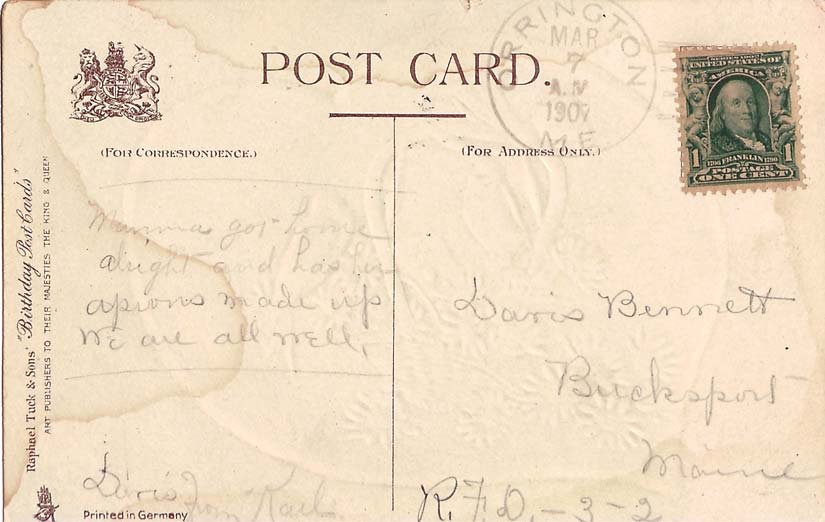 POST CARD.
ORRINGTON
MAR
7
A.M
1907
ME.
UNITED STATES OF
AMERICA
1
1706 FRANKLIN 1790
1
POSTAGE
ONE CENT
(FOR CORRESPONDENCE.)
(FOR ADDRESS ONLY.)
Mamma got home
alright and has her
aprons made up
We are all well,
Davis from Karl.
Davis Bennett
Bucksport
Maine
R.F.D. - 3 - 2
Raphael Tuck & Sons' "Birthday Post Cards"
ART PUBLISHERS TO THEIR MAJESTIES THE KING & QUEEN
Printed in Germany